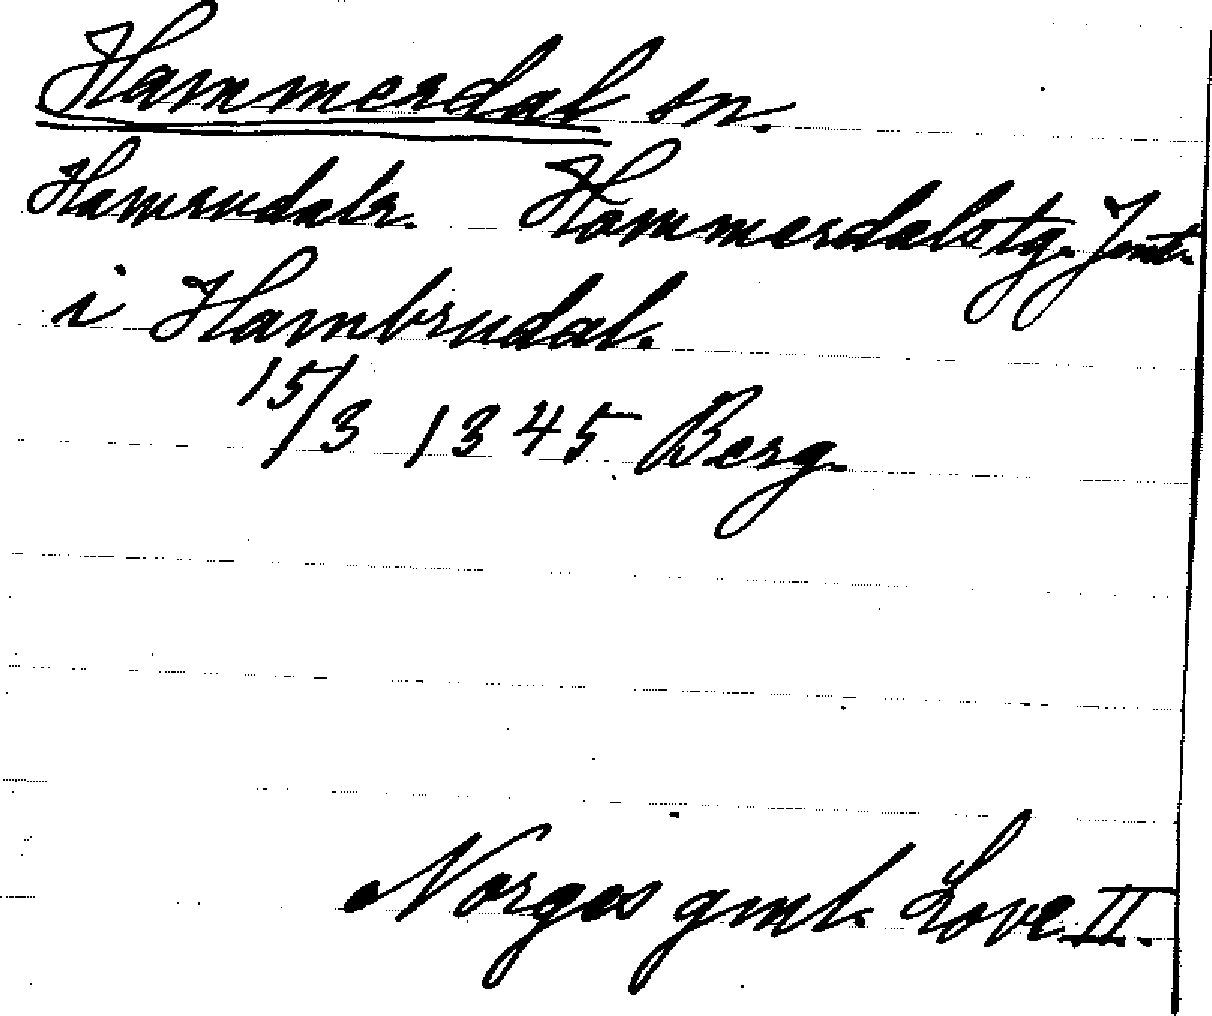 Hammerdal sn.
Hamrudalr. Hammerdalstg. Jmt.
i Hambrudal.
15/3 1345 Berg.
Norges gml. Love II.